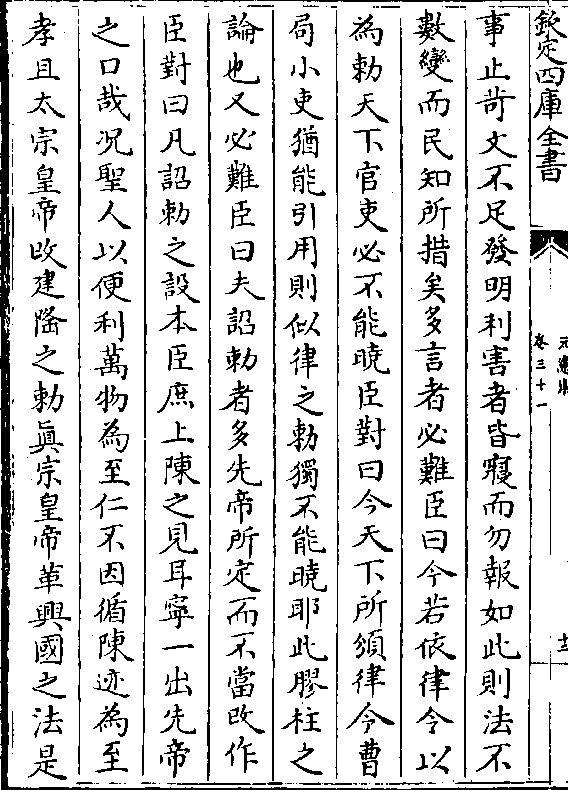 欽定四庫全書
卷三十一
事止苛文不足發明利害者皆寢而勿報如此則法不
數變而民知所措矣多言者必難臣曰今若依律令以
為勅天下官吏必不能曉臣對曰今天下所頒律令曹
局小吏猶能引用則似律之勅獨不能曉耶此膠柱之
論也又必難臣曰夫詔勅者多先帝所定而不當改作
臣對曰凡詔勅之設本臣庶上陳之見耳寧一出先帝
之口哉况聖人以便利萬物為至仁不因循陳迹為至
孝且太宗皇帝改建隆之勅真宗皇帝革興國之法是